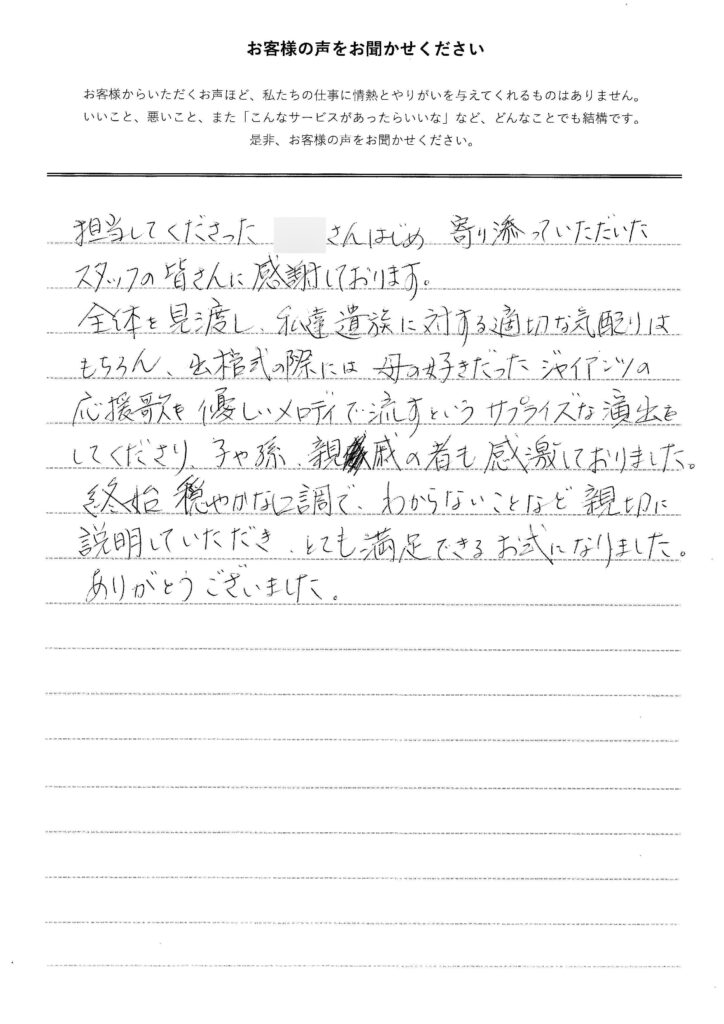 お客様の声をお聞かせください
お客様からいただくお声ほど、私たちの仕事に情熱とやりがいを与えてくれるものはありません。
いいこと、悪いこと、また「こんなサービスがあったらいいな」など、どんなことでも結構です。
是非、お客様の声をお聞かせください。
担当してくださった さんはじめ 寄り添っていただいた
スタッフの皆さんに感謝しております。
全体を見渡し、私達遺族に対する適切な気配りは
もちろん、出棺式の際には 母の好きだった ジャイアンツの
応援歌を 優しいメロディで流すという サプライズな演出を
してくださり、子や孫、親戚の者も 感激しておりました。
終始 穏やかな口調で、わからないことなど 親切に
説明していただき、とても満足できるお式になりました。
ありがとうございました。